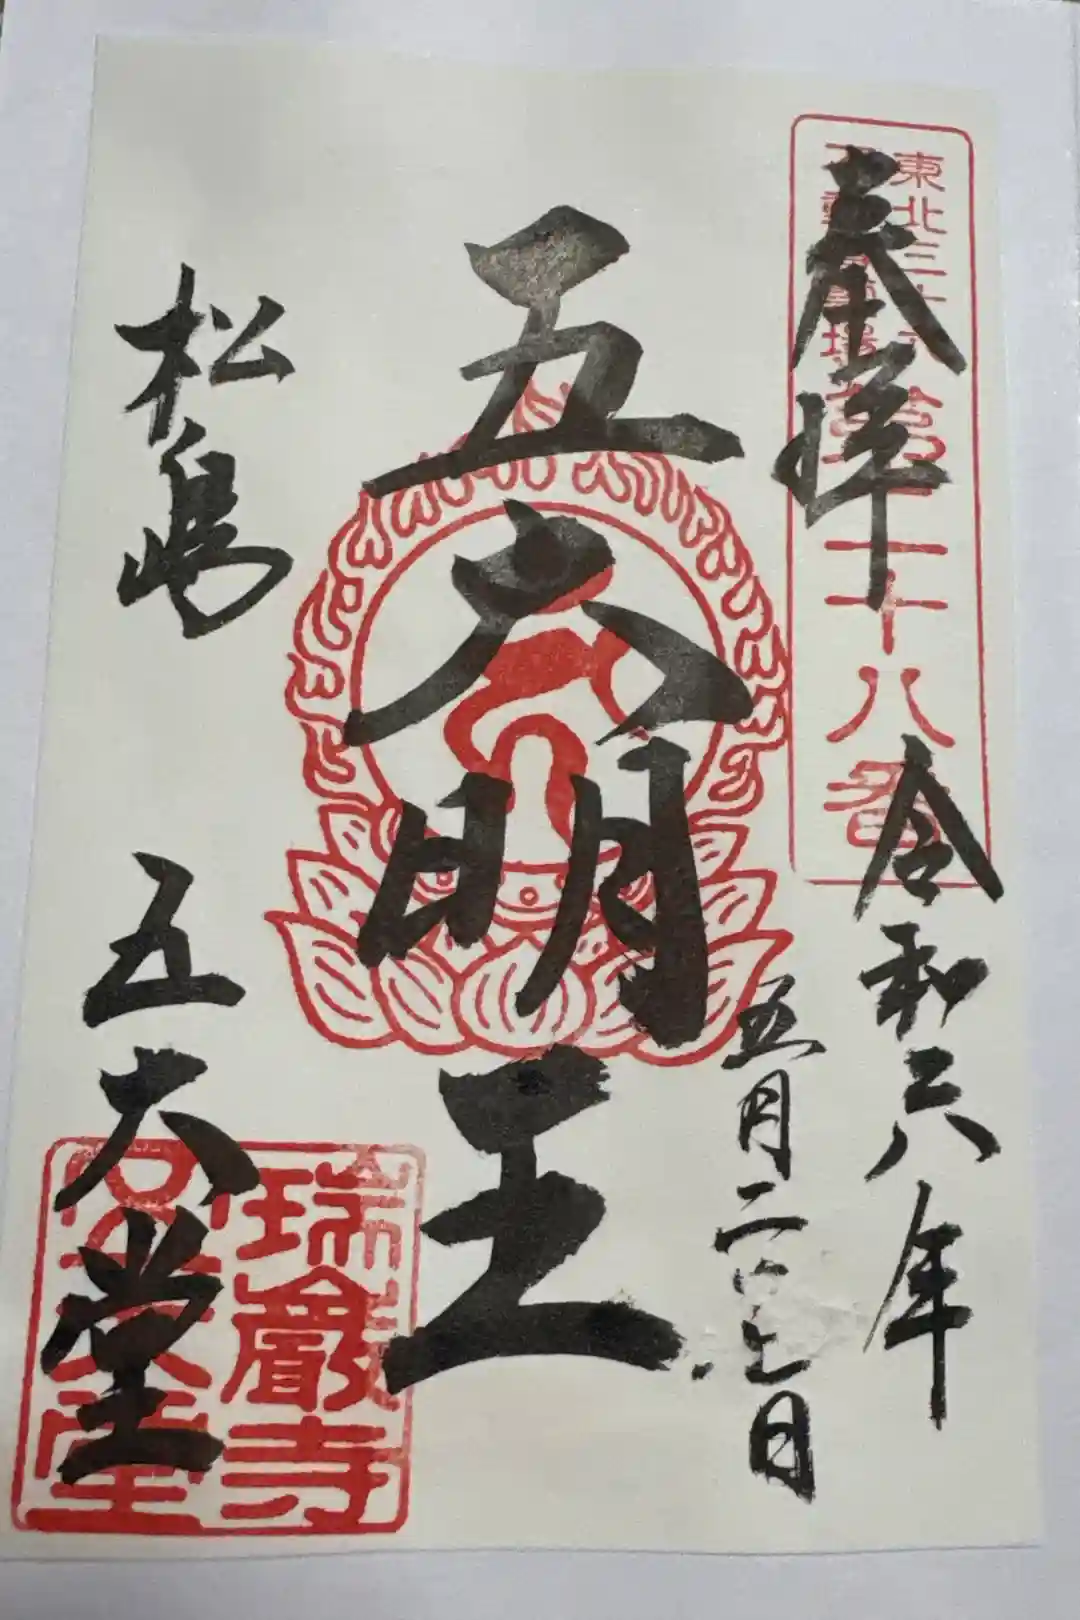 奉拝
東北三十六
不動尊霊場
第二十八番
令和六年
五月二 日
五大明王
松嶋
五大堂
瑞巖寺
五大堂